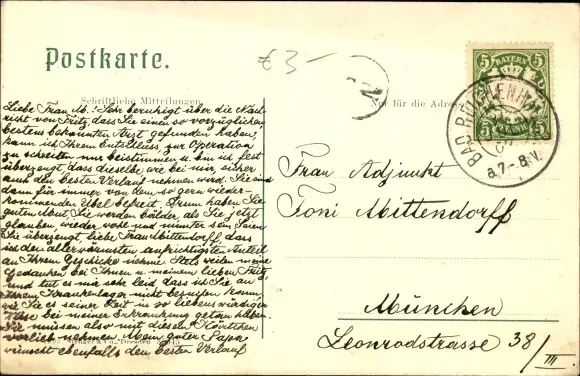 Postkarte.
€ 3-
BAYERN
5 5
5 5
Schriftliche Mitteilungen
Nur für die Adresse
Liebe Frau M.! Sehr beruhigt über die Nach-
richt von Fritz, dass Sie einen so vorzüglichen
bestens bekannten Arzt gefunden haben,
kann ich Ihrem Entschluss, zur Operation
zu schreiten nur beistimmen u. bin ich fest
überzeugt, dass dieselbe, wie bei mir, sicher
auch den besten Verlauf nehmen wird. Sie sind
dann für immer von dem so gern wieder-
kommenden Übel befreit. Drum haben Sie
guten Mut, Sie werden bälder, als Sie jetzt
glauben, wieder wohl und munter sein. Seien
Sie überzeugt, liebe Frau Mittendorff, dass
ich den allerwärmsten aufrichtigsten Anteil
an Ihrem Geschicke nehme. Stets weilen meine
Gedanken bei Ihnen u. meinem lieben Fritz,
und tut es mir sehr leid dass ich Sie an
Ihrem Krankenlager nicht besuchen kann,
wie Sie es seiner Zeit in so liebenswürdiger
Weise bei meiner Erkrankung getan haben.
Sie müssen also mit diesen Kärtchen
vorlieb nehmen. Mein guter Papa
wünscht ebenfalls den besten Verlauf
8.7-8.V.
Frau Adjunkt
Toni Mittendorff
München
Leonrodstrasse 38/III.